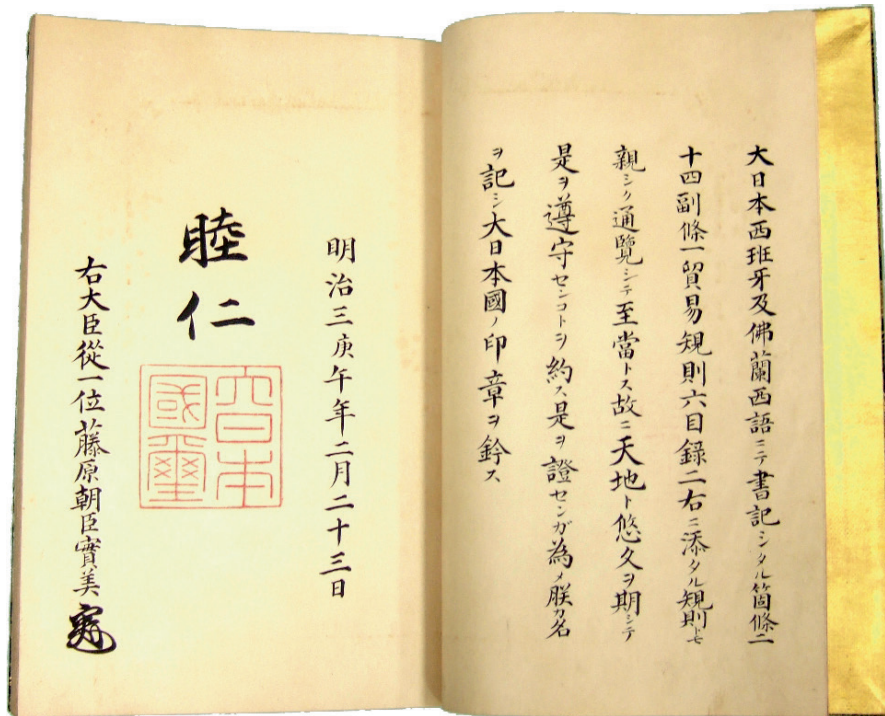 大日本西班牙及佛蘭西語ニテ書記シタル箇條二
十四副條一貿易規則六目録二右ニ添タル規則トモ
親シク通覽シテ至當トス故ニ天地ト悠久ヲ期シテ
是ヲ遵守センコトヲ約ス是ヲ證センガ為メ朕カ名
ヲ記シ大日本國ノ印章ヲ鈐ス
明治三庚午年二月二十三日
睦仁
大日本
國璽
右大臣從一位藤原朝臣實美